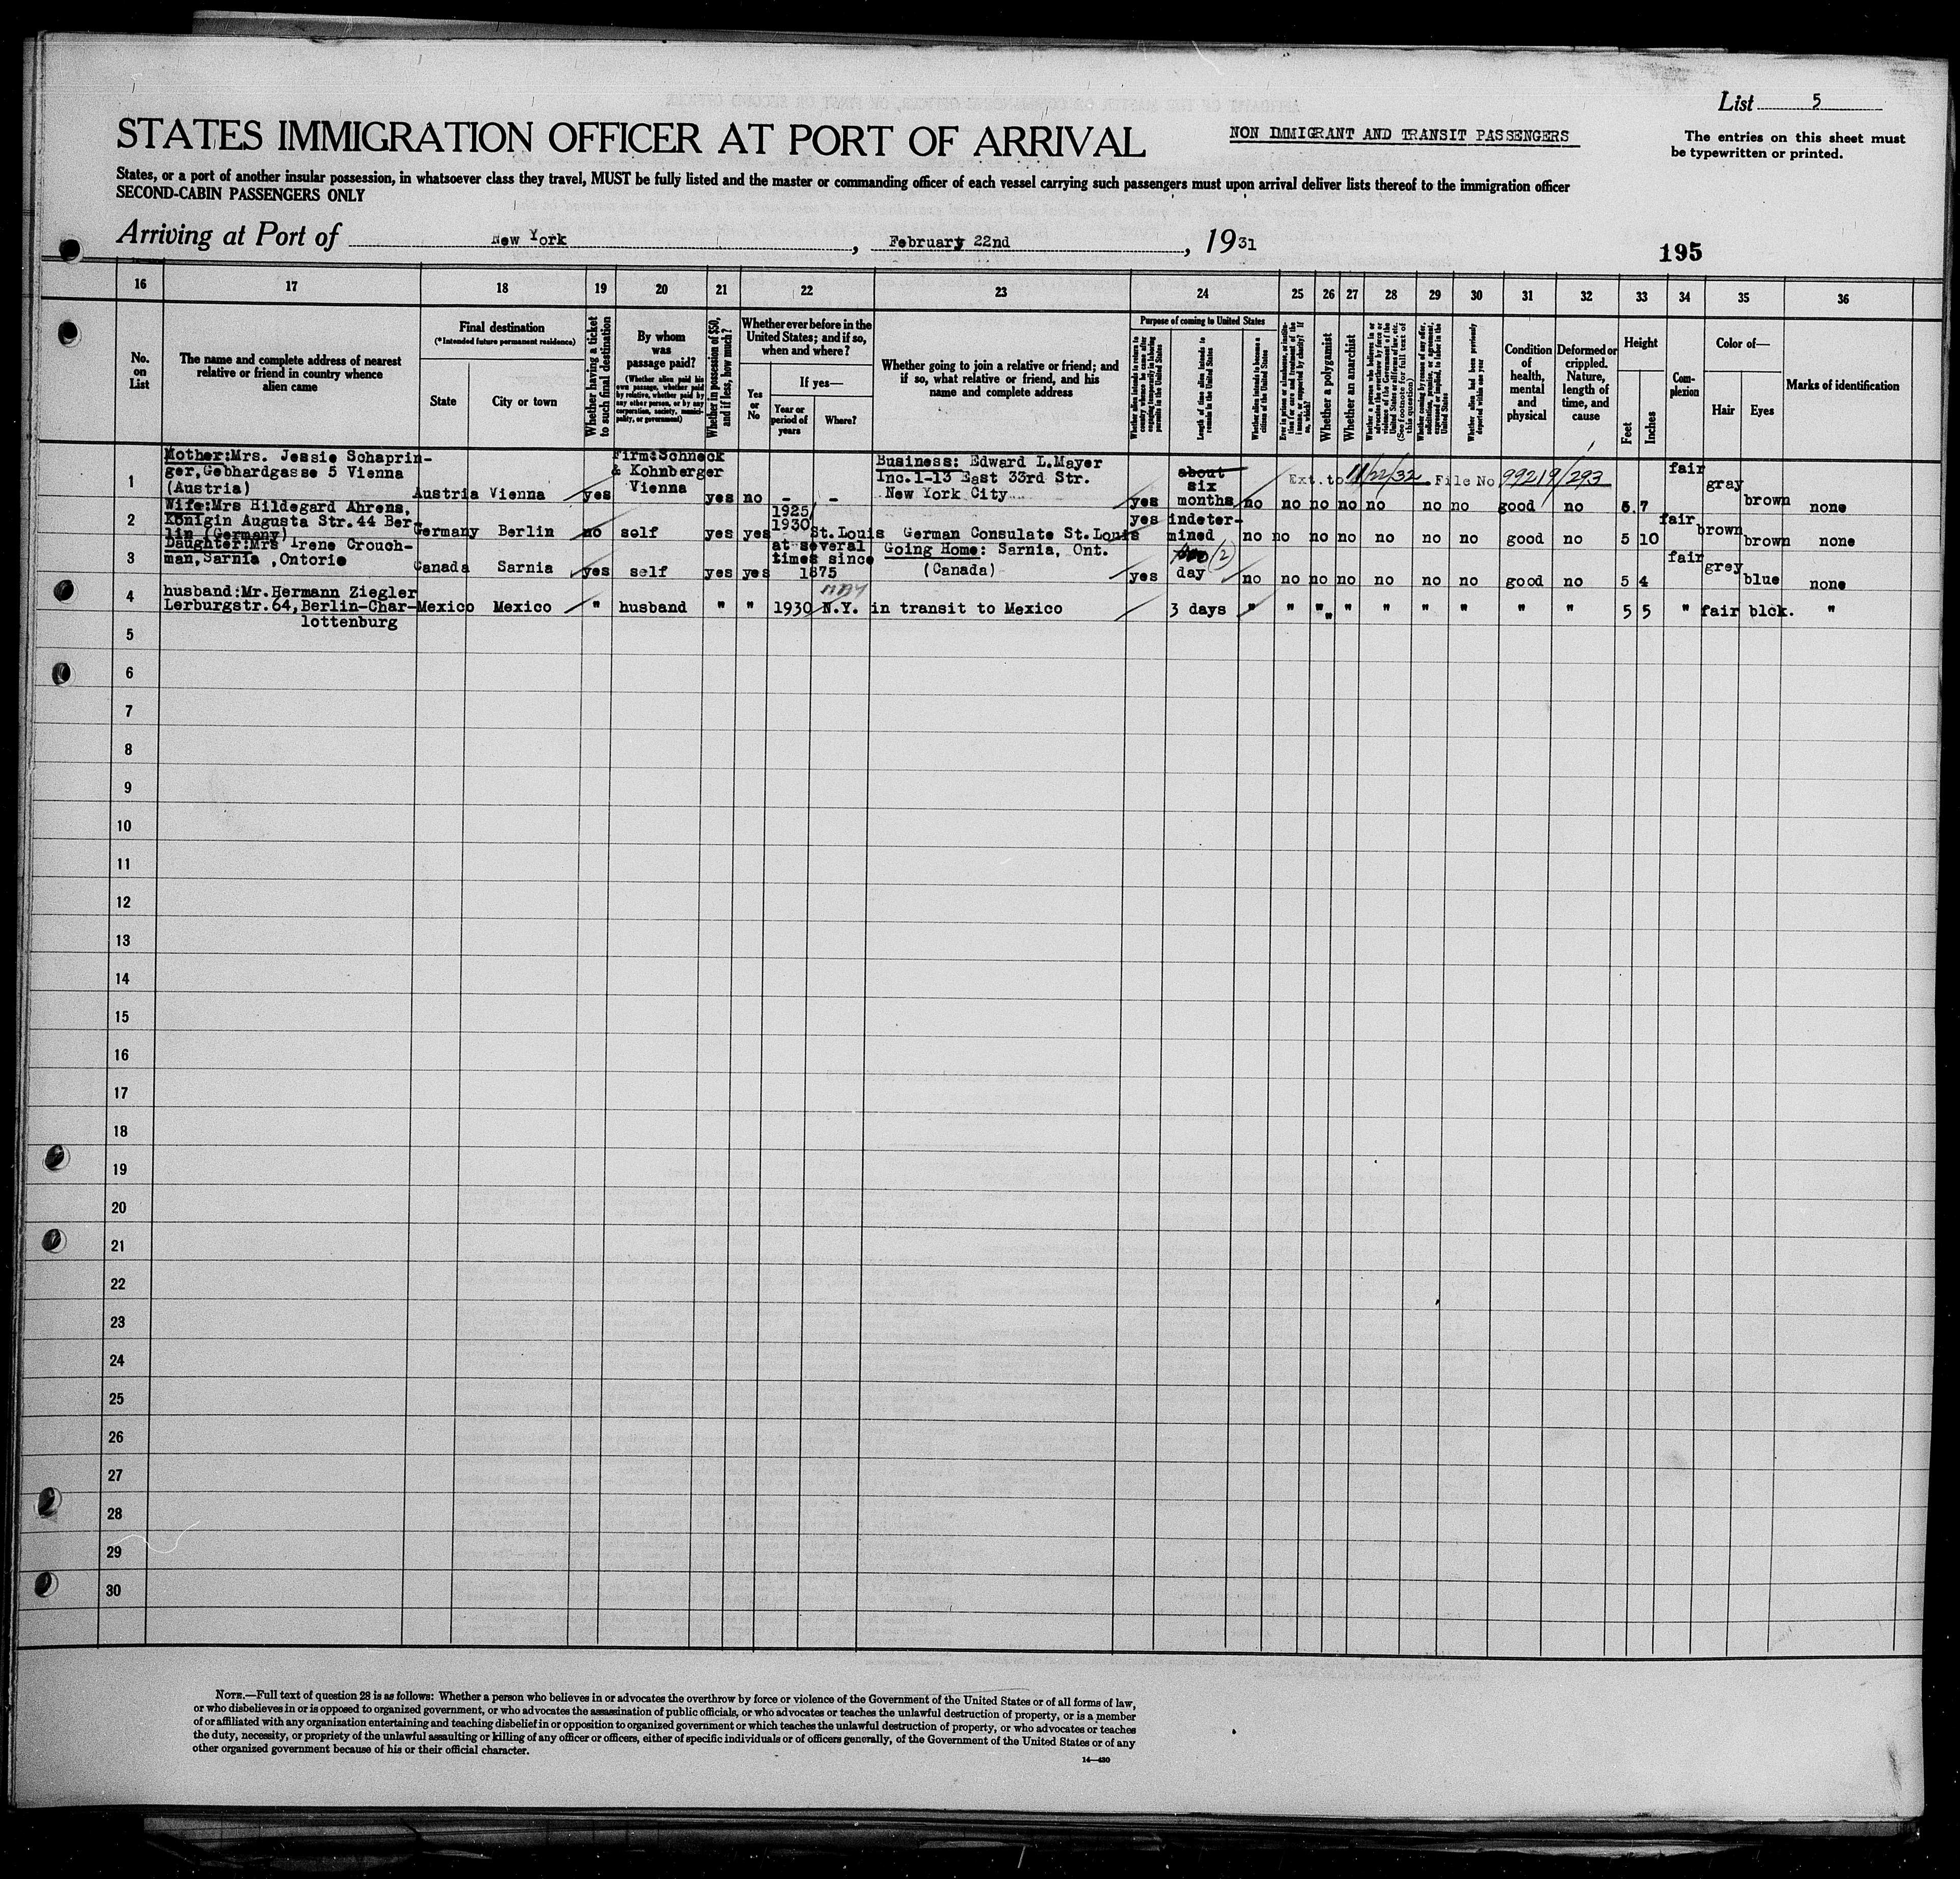 List 5
STATES IMMIGRATION OFFICER AT PORT OF ARRIVAL
NON IMMIGRANT AND TRANSIT PASSENGERS
The entries on this sheet must
be typewritten or printed.
States, or a port of another insular possession, in whatsoever class they travel, MUST be fully listed and the master or commanding officer of each vessel carrying such passengers must upon arrival deliver lists thereof to the immigration officer
SECOND-CABIN PASSENGERS ONLY
Arriving at Port of New York, February 22nd, 1931
195
16 17 18 19 20 21 22 23 24 25 26 27 28 29 30 31 32 33 34 35 36
No. on List
The name and complete address of nearest relative or friend in country whence alien came
Final destination
(*Intended future permanent residence)
State
City or town
Whether having a ticket to such final destination
By whom was passage paid?
(Whether alien paid his own passage, whether paid by relative, whether paid by any other person, or by any corporation, society, municipality, or government)
Whether in possession of $50, and if less, how much?
Whether ever before in the United States; and if so, when and where?
Yes or No
If yes—
Year or period of years
Where?
Whether going to join a relative or friend; and if so, what relative or friend, and his name and complete address
Purpose of coming to United States
Whether alien intends to return to country whence he came after engaging temporarily in laboring pursuits in the United States
Length of time alien intends to remain in the United States
Whether alien intends to become a citizen of the United States
Ever in prison or almshouse, or institution for care and treatment of the insane, or supported by charity? If so, which?
Whether a polygamist
Whether an anarchist
Whether a person who believes in or advocates the overthrow by force or violence of the Government of the United States or all forms of law, etc. (See footnote for full text of this question)
Whether coming by reason of any offer, solicitation, promise, or agreement, expressed or implied, to labor in the United States
Whether alien had been previously deported within one year
Condition of health, mental and physical
Deformed or crippled. Nature, length of time, and cause
Height
Feet
Inches
Complexion
Color of—
Hair
Eyes
Marks of identification
1 Mother:Mrs. Jessie Schaprin-
ger,Gebhardgasse 5 Vienna
(Austria) Austria Vienna yes Firm:Schneck
& Kohnberger
Vienna yes no - - Business: Edward L.Mayer
Inc.1-13 East 33rd Str.
New York City yes about
six
months no Ext. to 11/22/32 File No 99219/293
no no no no no no good no 5 7 fair gray brown none
2 Wife:Mrs Hildegard Ahrens,
Königin Augusta Str.44 Ber-
lin (Germany) Germany Berlin no self yes yes 1925/
1930 St.Louis German Consulate St.Louis yes indeter-
mined no no no no no no no good no 5 10 fair brown brown none
3 Daughter:Mrs Irene Crouch-
man,Sarnia ,Ontorio Canada Sarnia yes self yes yes at several
times since
1875 Going Home: Sarnia, Ont.
(Canada) yes (2)
day no no no no no no no good no 5 4 fair grey blue none
4 husband:Mr.Hermann Ziegler
Lerburgstr.64,Berlin-Char-
lottenburg Mexico Mexico " husband " " 1930 N.Y. in transit to Mexico 3 days " " " " " " " " " 5 5 " fair blck. "
5
6
7
8
9
10
11
12
13
14
15
16
17
18
19
20
21
22
23
24
25
26
27
28
29
30
NOTE.—Full text of question 28 is as follows: Whether a person who believes in or advocates the overthrow by force or violence of the Government of the United States or of all forms of law,
or who disbelieves in or is opposed to organized government, or who advocates the assassination of public officials, or who advocates or teaches the unlawful destruction of property, or is a member
of or affiliated with any organization entertaining and teaching disbelief in or opposition to organized government or which teaches the unlawful destruction of property, or who advocates or teaches
the duty, necessity, or propriety of the unlawful assaulting or killing of any officer or officers, either of specific individuals or of officers generally, of the Government of the United States or of any
other organized government because of his or their official character.
14—430